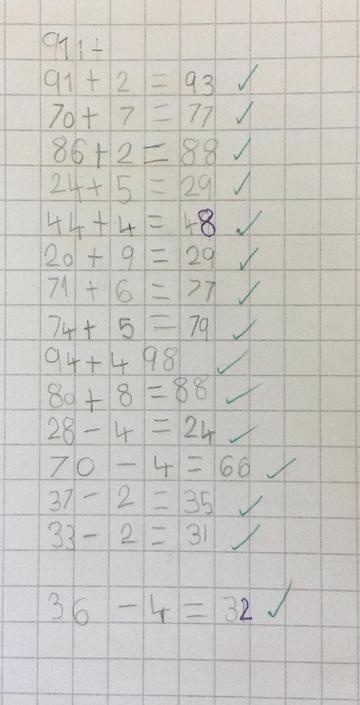 911+
91 + 2 = 93 ✓
70 + 7 = 77 ✓
86 + 2 = 88 ✓
24 + 5 = 29 ✓
44 + 4 = 48 ✓
20 + 9 = 29 ✓
71 + 6 = 77 ✓
74 + 5 = 79 ✓
94 + 4 98 ✓
80 + 8 = 88 ✓
28 - 4 = 24 ✓
70 - 4 = 66 ✓
37 - 2 = 35 ✓
33 - 2 = 31 ✓
36 - 4 = 32 ✓